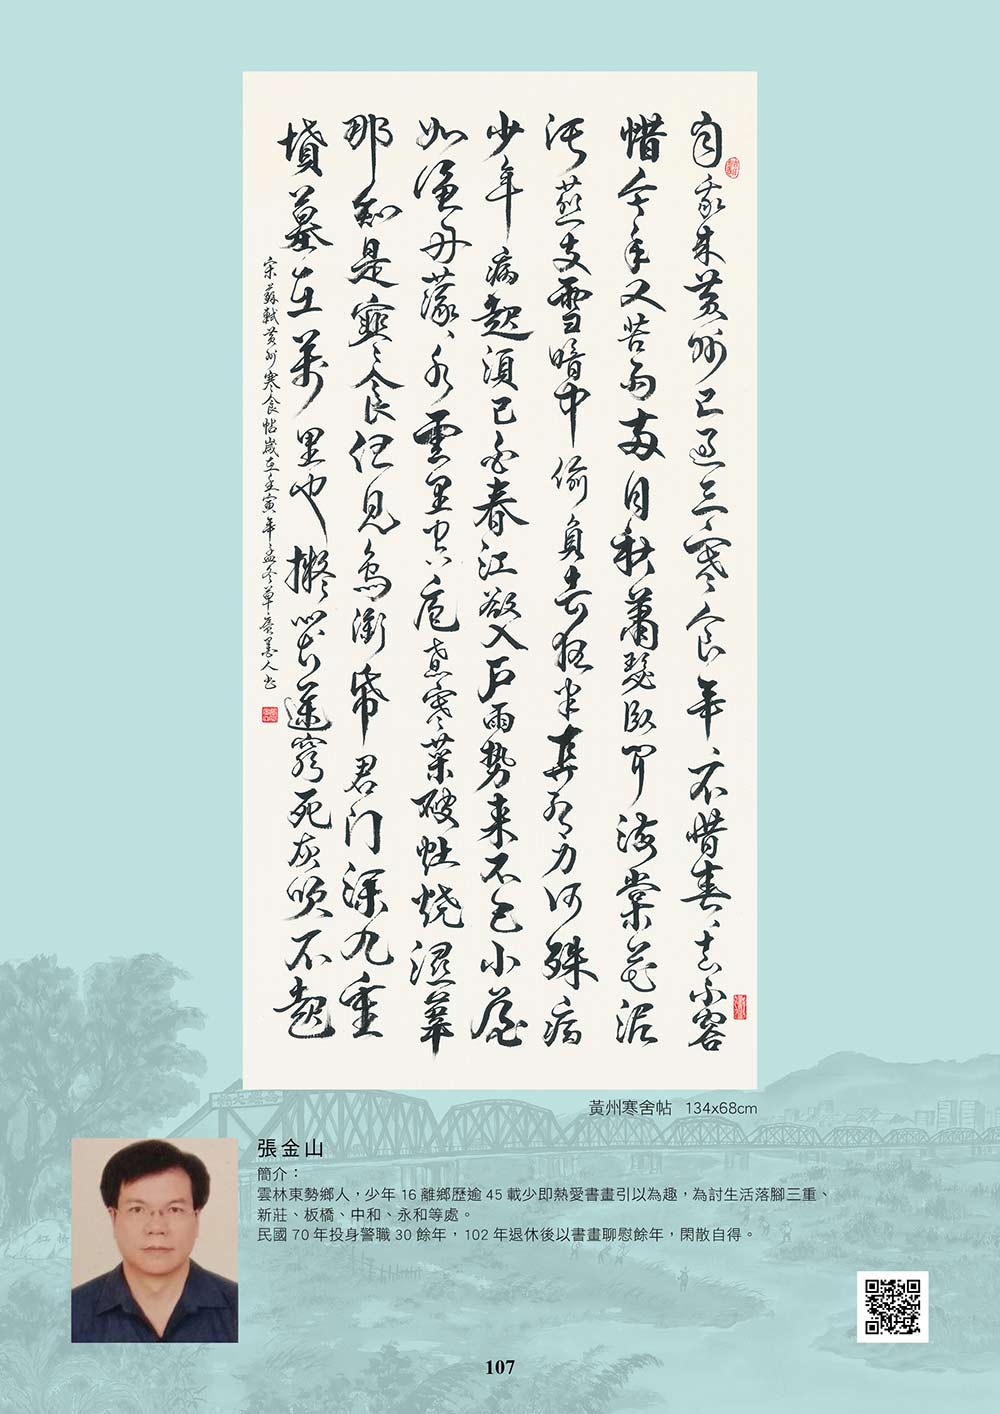 自我來黃州已過三寒食年惜春、去不容
惜今年又苦雨兩月秋蕭瑟臥聞海棠花泥
污燕支雪暗中偷負去夜半真有力何殊病
少年病起須已白春江欲入戶雨勢來不已小屋
如漁舟濛、水雲里空庖煮寒菜破灶燒濕葦
那知是寒食但見烏銜帋君門深九重
墳墓在萬里也擬哭途窮死灰吹不起
宋蘇軾黃州寒食帖歲在壬寅年孟冬草墨人書
黃州寒舍帖 134x68cm
張金山
簡介：
雲林東勢鄉人，少年 16 離鄉歷逾 45 載少即熱愛書畫引以為趣，為討生活落腳三重、
新莊、板橋、中和、永和等處。
民國 70 年投身警職 30 餘年，102 年退休後以書畫聊慰餘年，閑散自得。
107